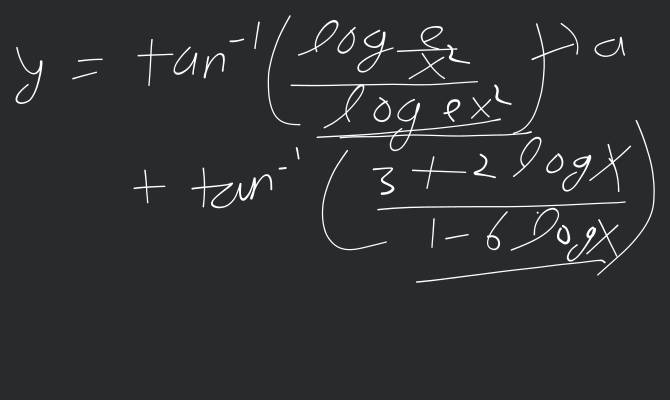 y = tan⁻¹( (log e/x²) / (log ex²) ) → a
+ tan⁻¹( (3 + 2 log x) / (1 - 6 log x) )